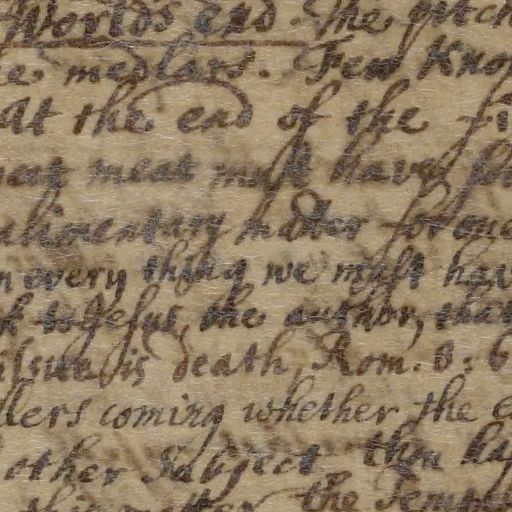 World's End. The pitch
medlars. Few Know
at the end of the fi
meat must have
alimentary matter for one
n every thing we must hav
k to Jesus, the author, that
is death, Rom. 8: 6
llers coming whether the e
other Subject thou ha
this matter the Temp